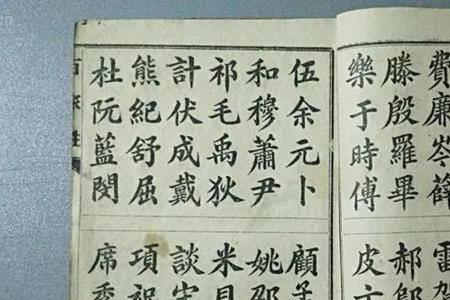 費廉岑薛雷賀
滕殷羅畢郝鄔
樂于時傅皮
伍余元卜顧孟
和穆蕭尹姚邵
祁毛禹狄米貝
計伏成戴談宋
熊紀舒屈項祝
杜阮藍閔席季
百家姓